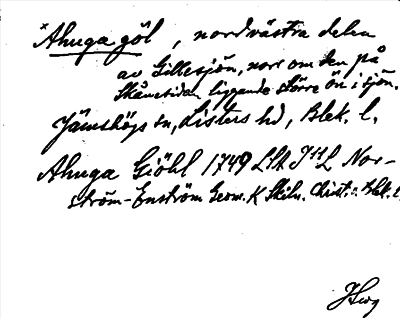 *Ahuga göl, nordvästra delen
av Gillesjön, norr om den på
Skånesidan liggande större ön i sjön.
Jämshögs sn, Listers hd, Blek. l.
Ahuga Giöhl 1749 LSA Nor-
ström-Enström Geom. K Skiln. Christ. o. Blek. l.